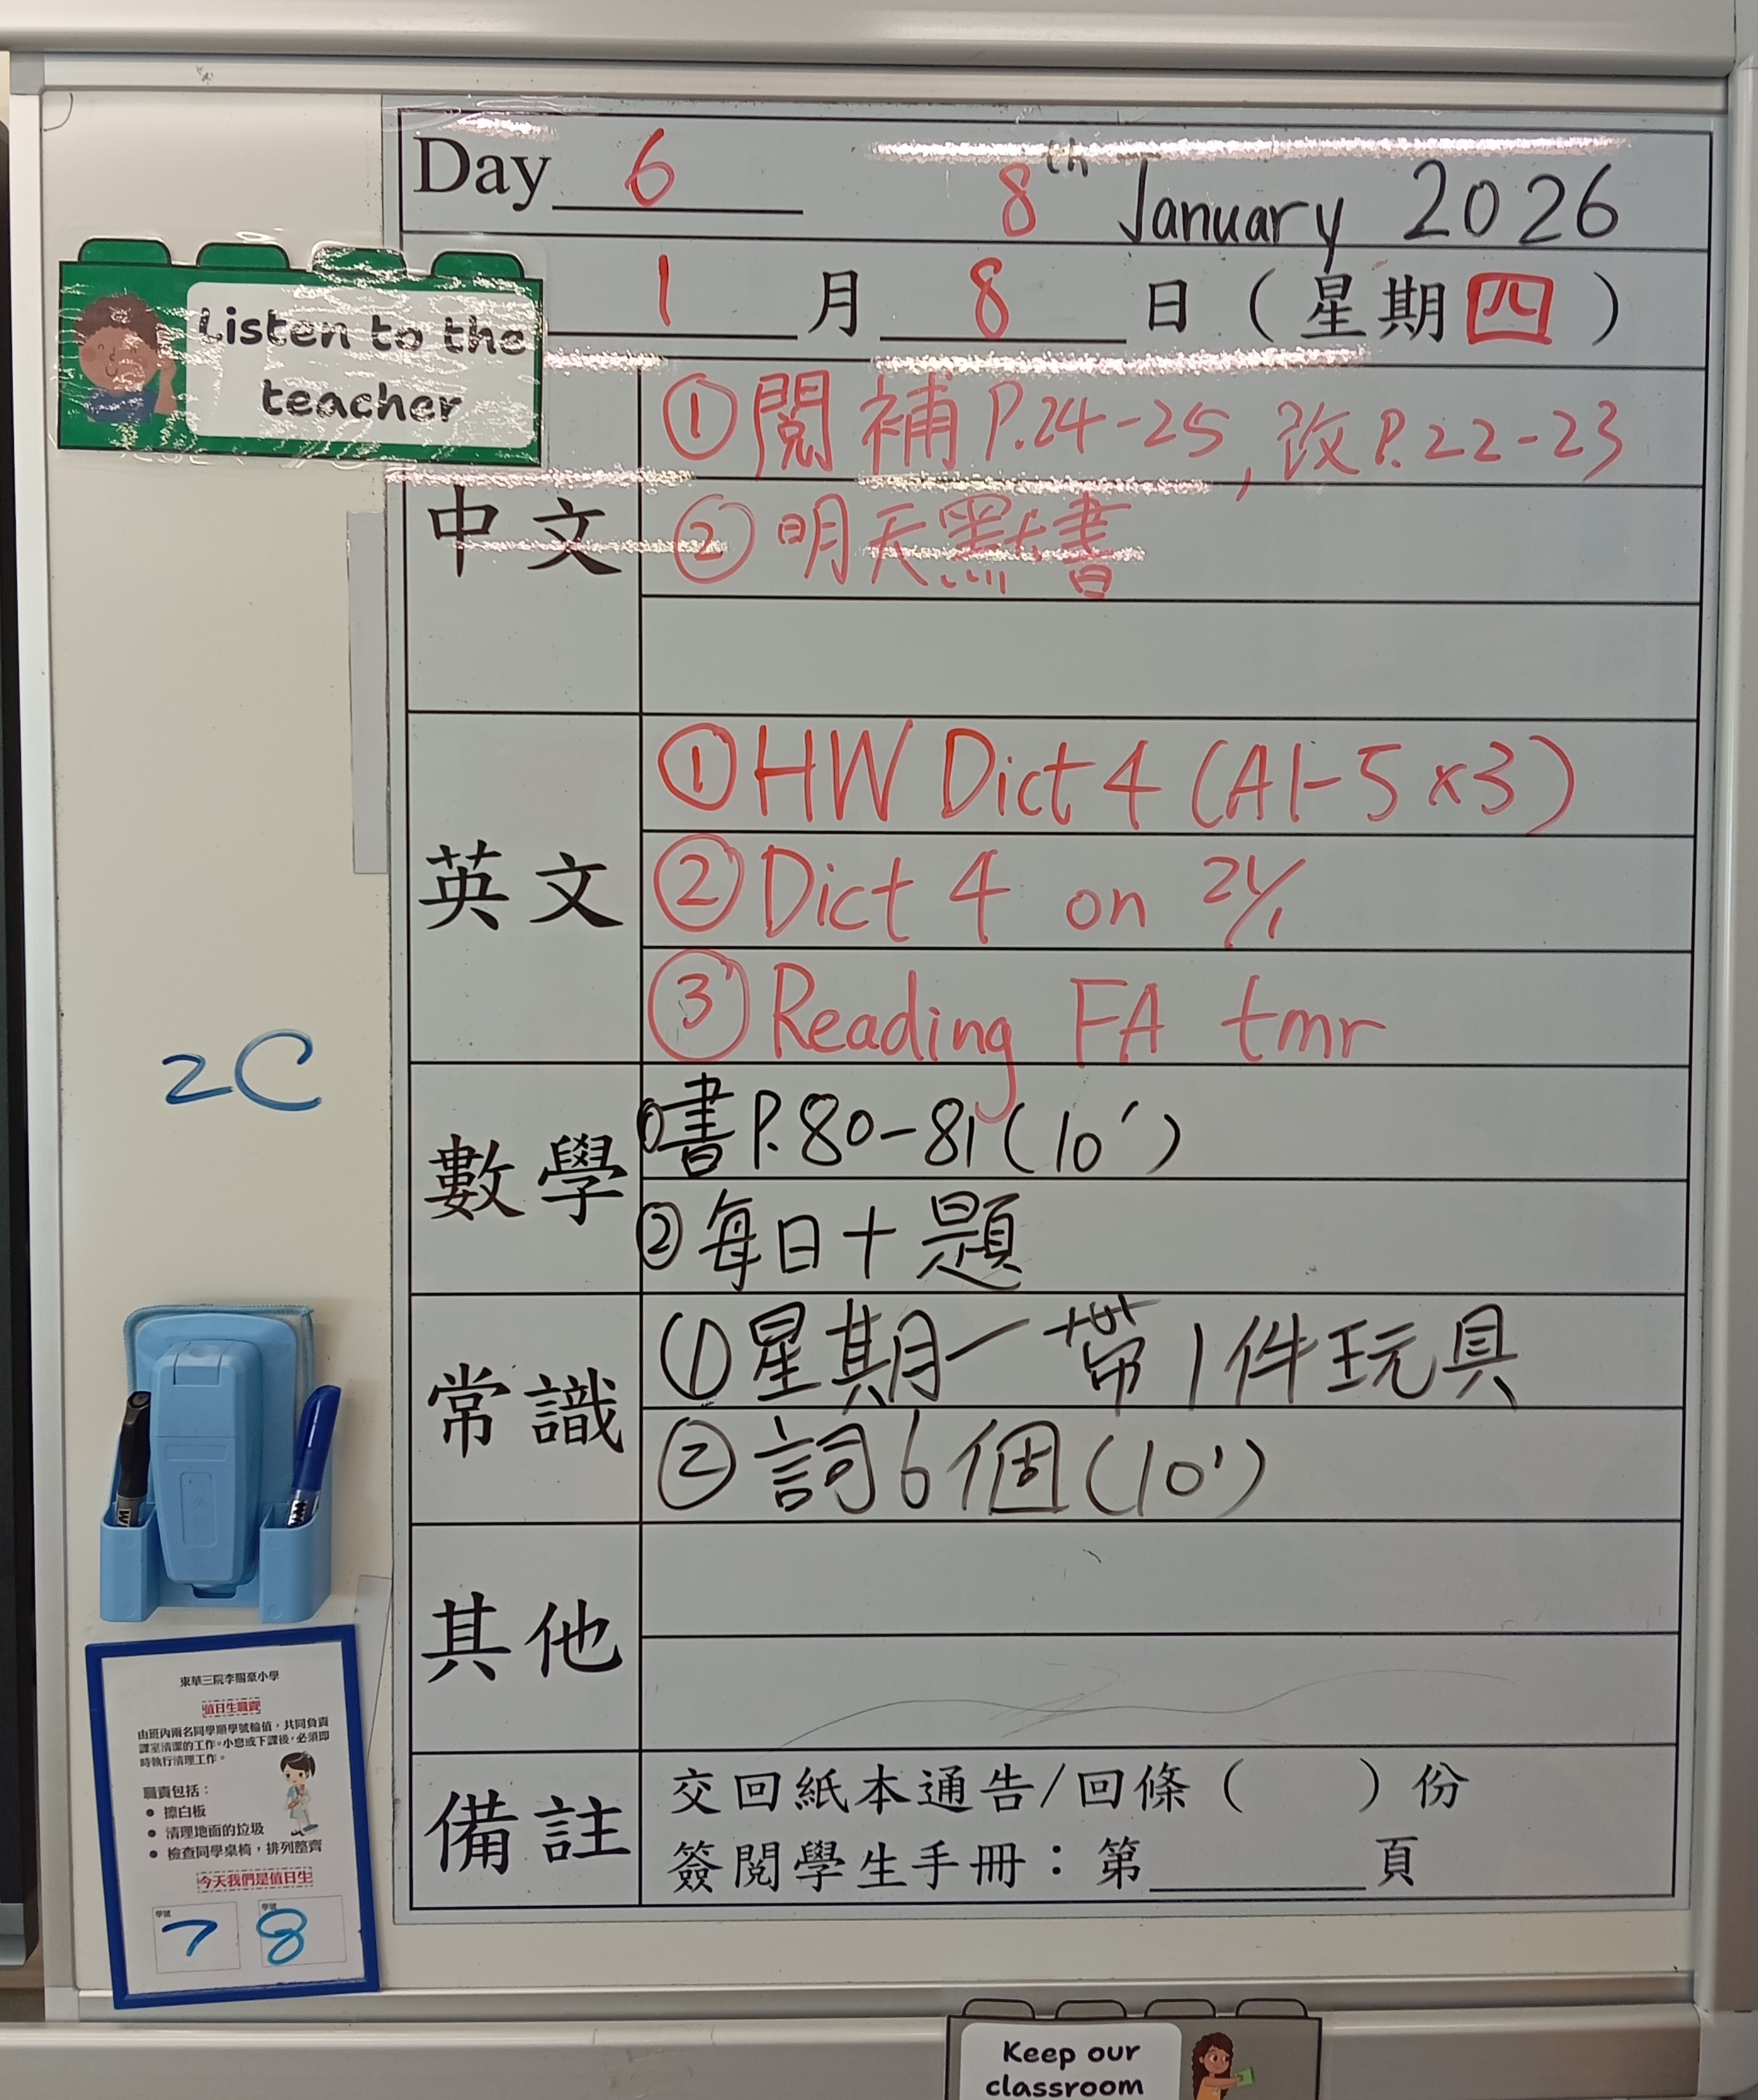 Day 6 8th January 2026
Listen to the
teacher
1 月 8 日 ( 星期 四 )
中文
① 閱補 P.24-25, 改 P.22-23
② 明天默書
英文
① HW Dict 4 (A1-5 x3)
② Dict 4 on 21/1
③ Reading FA tmr
2C
數學
① 書 P.80-81 (10')
② 每日十題
常識
① 星期一帶1件玩具
② 詞6個 (10')
其他
備註
交回紙本通告/回條 ( ) 份
簽閱學生手冊：第______頁
東華三院李賜豪小學
值日生職責
由班內兩名同學順學號輪值，共同負責
課室清潔的工作。小息或下課後，必須即
時執行清理工作。
職責包括：
• 擦白板
• 清理地面的垃圾
• 檢查同學桌椅，排列整齊
今天我們是值日生
學號 學號
7 8
Keep our
classroom